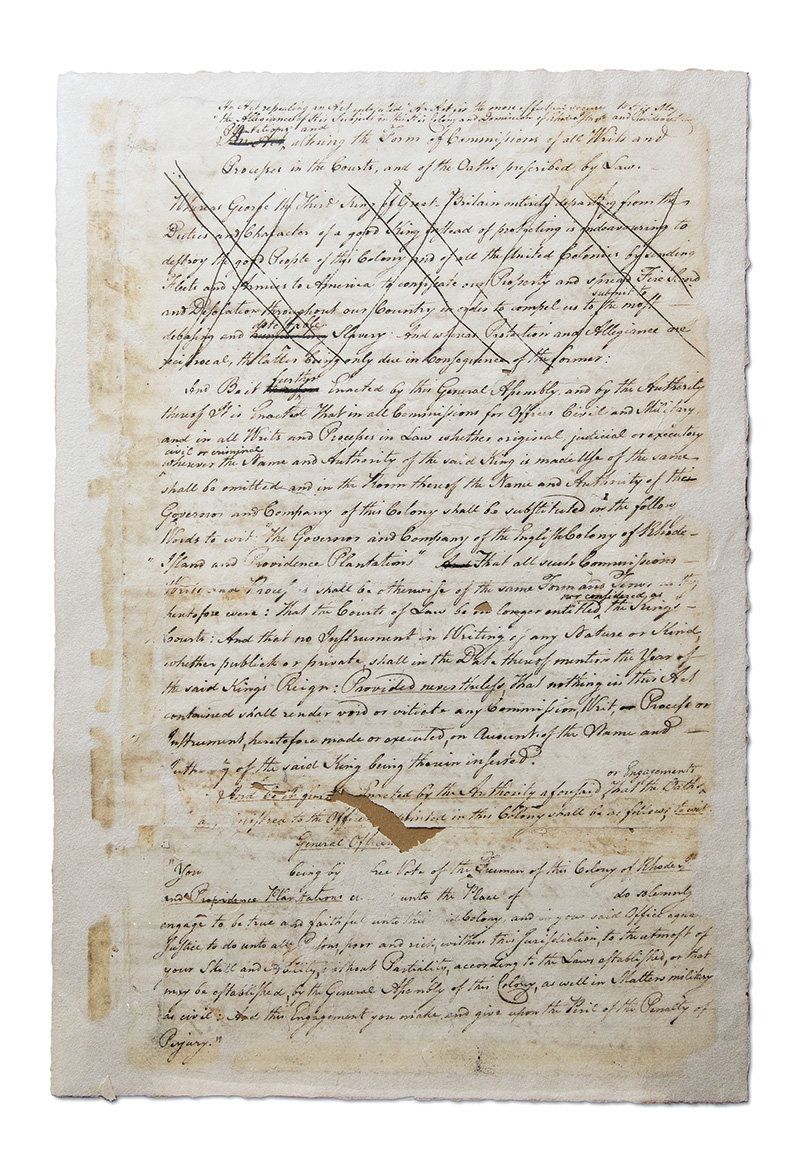 An Act repealing an Act intituled "An Act for the more effectual securing to his Majesty
the Allegiance of his Subjects in this his Colony and Dominion of Rhode Island and Providence
Plantations" and
An Act altering the Form of Commissions of all Writs and
Processes in the Courts, and of the Oaths prescribed by Law.
Whereas George the Third King of Great-Britain entirely departing from the
Duties and Character of a good King instead of protecting is endeavouring to
destroy the good People of this Colony and of all the United Colonies by sending
Fleets and Armies to America to confiscate our Property and spread Fire Sword
and Desolation throughout our Country in order to compel us to submit to the most
debasing and detestable Slavery: And whereas Protection and Allegiance are
reciprocal, the latter being only due in Consequence of the former:
And Be it further Enacted by this General Assembly, and by the Authority
thereof It is Enacted that in all Commissions for Offices Civil and Military,
and in all Writs and Processes in Law whether original judicial or executory
civil or criminal
wherever the Name and Authority of the said King is made Use of the same
shall be omitted and in the Room thereof the Name and Authority of the
Governor and Company of this Colony shall be substituted in the follow
Words to wit: "The Governor and Company of the English Colony of Rhode-
Island and Providence Plantations" And That all such Commissions
Writs and Processes shall be otherwise of the same Form and Tenor as they
heretofore were: That the Courts of Law be no longer entitled nor considered as the King's
Courts: And that no Instrument in Writing of any Nature or Kind,
whether publick or private, shall in the Date thereof mention the Year of
the said King's Reign: Provided nevertheless, that nothing in this Act
contained shall render void or vitiate any Commission, Writ, or Process or
Instrument, heretofore made or executed, on Account of the Name and
Authority of the said King being therein inserted.
And be it Enacted by the Authority aforesaid That the Oaths or Engagements
to the Officers in this Colony shall be as follows, to wit
General Officers
"You being by Free Vote of the Freemen of this Colony of Rhode Isld
and Providence Plantations unto the Place of do solemnly
engage to be true and faithful unto this Colony, and in your said Office equal
Justice to do unto all Persons, poor and rich, within this Jurisdiction, to the utmost of
your Skill and Ability, without Partiality, according to the Laws established, or that
may be established, by the General Assembly of this Colony, as well in Matters military
as civil: And this Engagement you make and give upon the Peril of the Penalty of
Perjury."